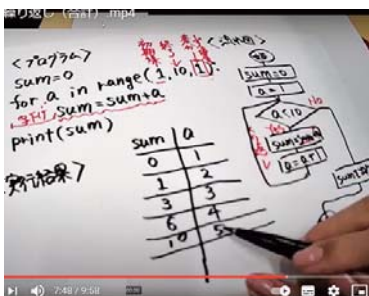 繰り返し（合計）.mp4
<プログラム>
sum=0
for a in range(1,10,1):
字下げ sum=sum+a
print(sum)
実行結果>
sum a
0 1
1 2
3 3
6 4
10 5
<流れ図>
sum=0
a=1
a<10
Yes
No
a=a+1
7:48 / 9:58